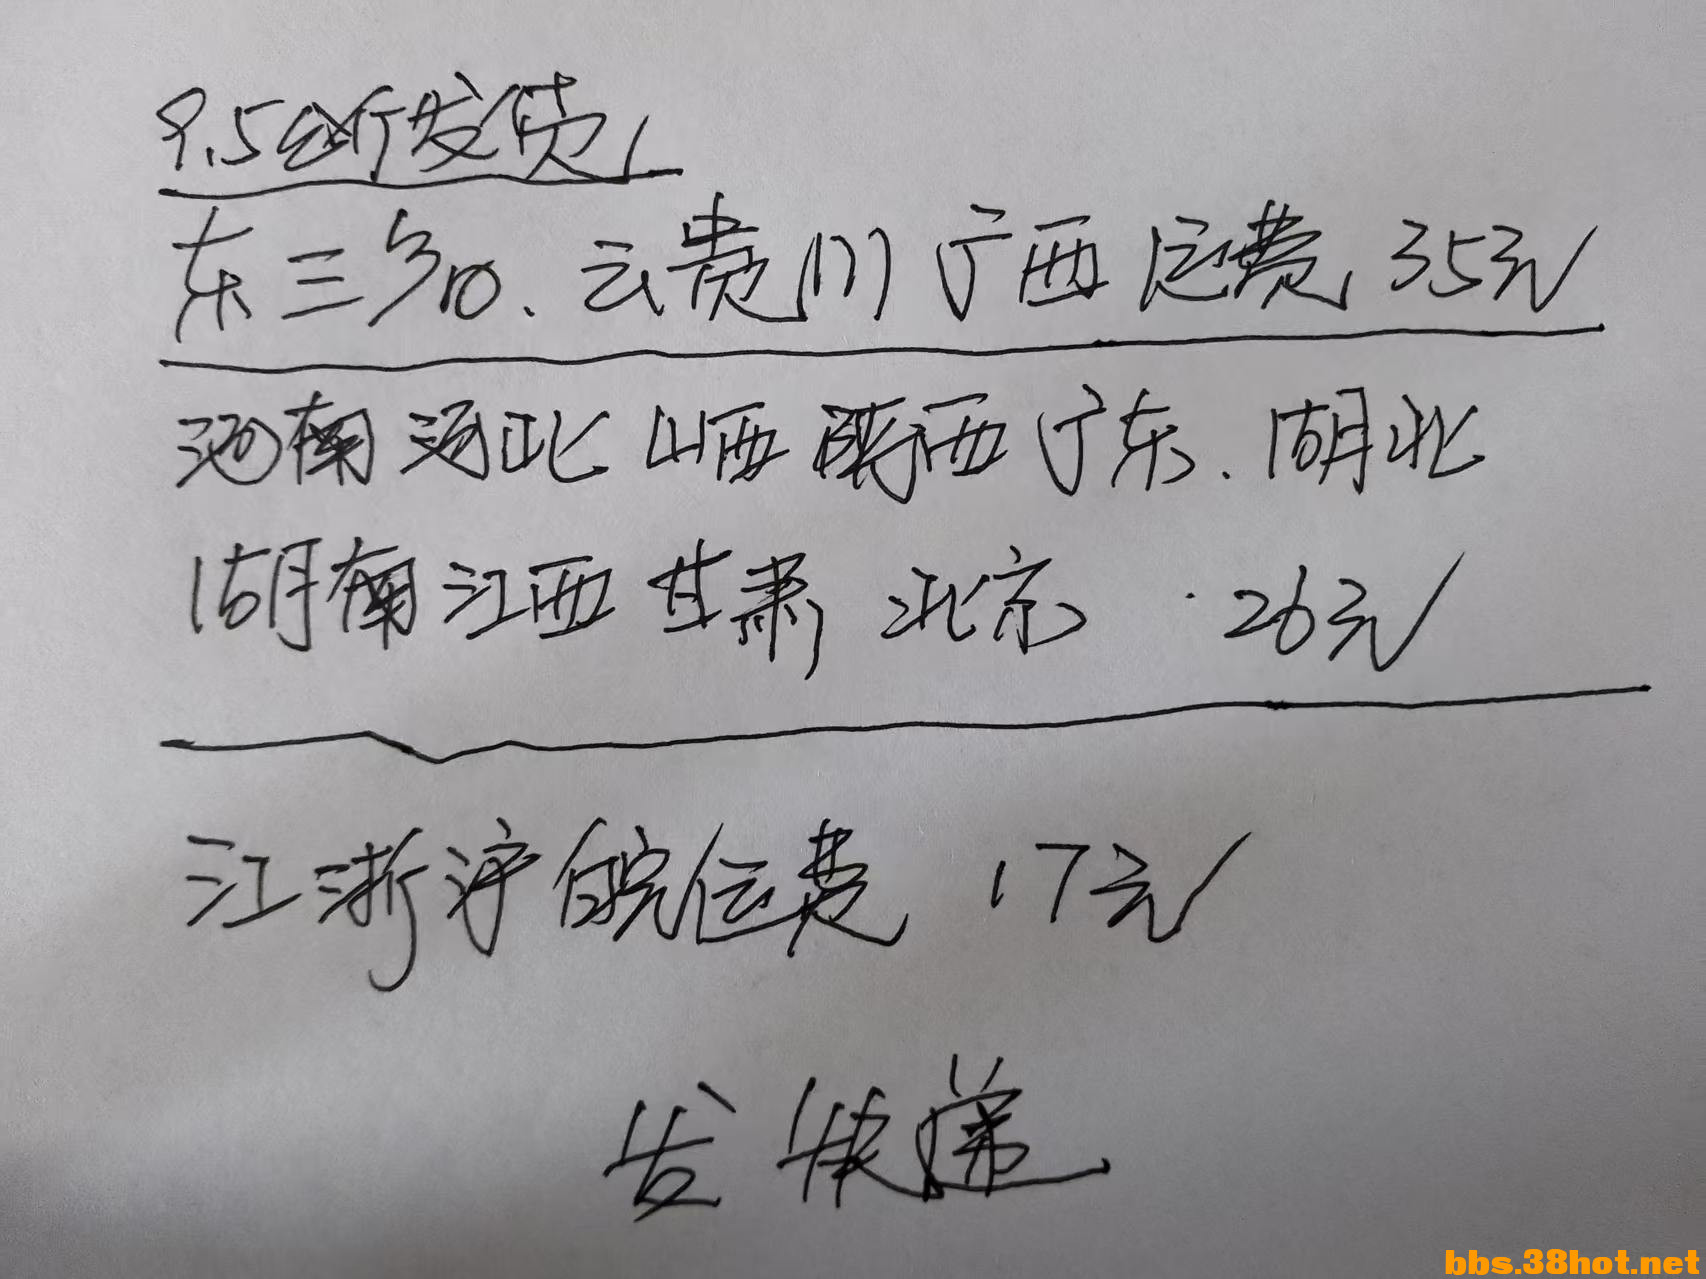 9.5公斤发货
东三省、云贵川广西运费35元
河南河北山西陕西广东.湖北
湖南江西甘肃北京 26元
江浙沪皖运费 17元
发快递
bbs.38hot.net